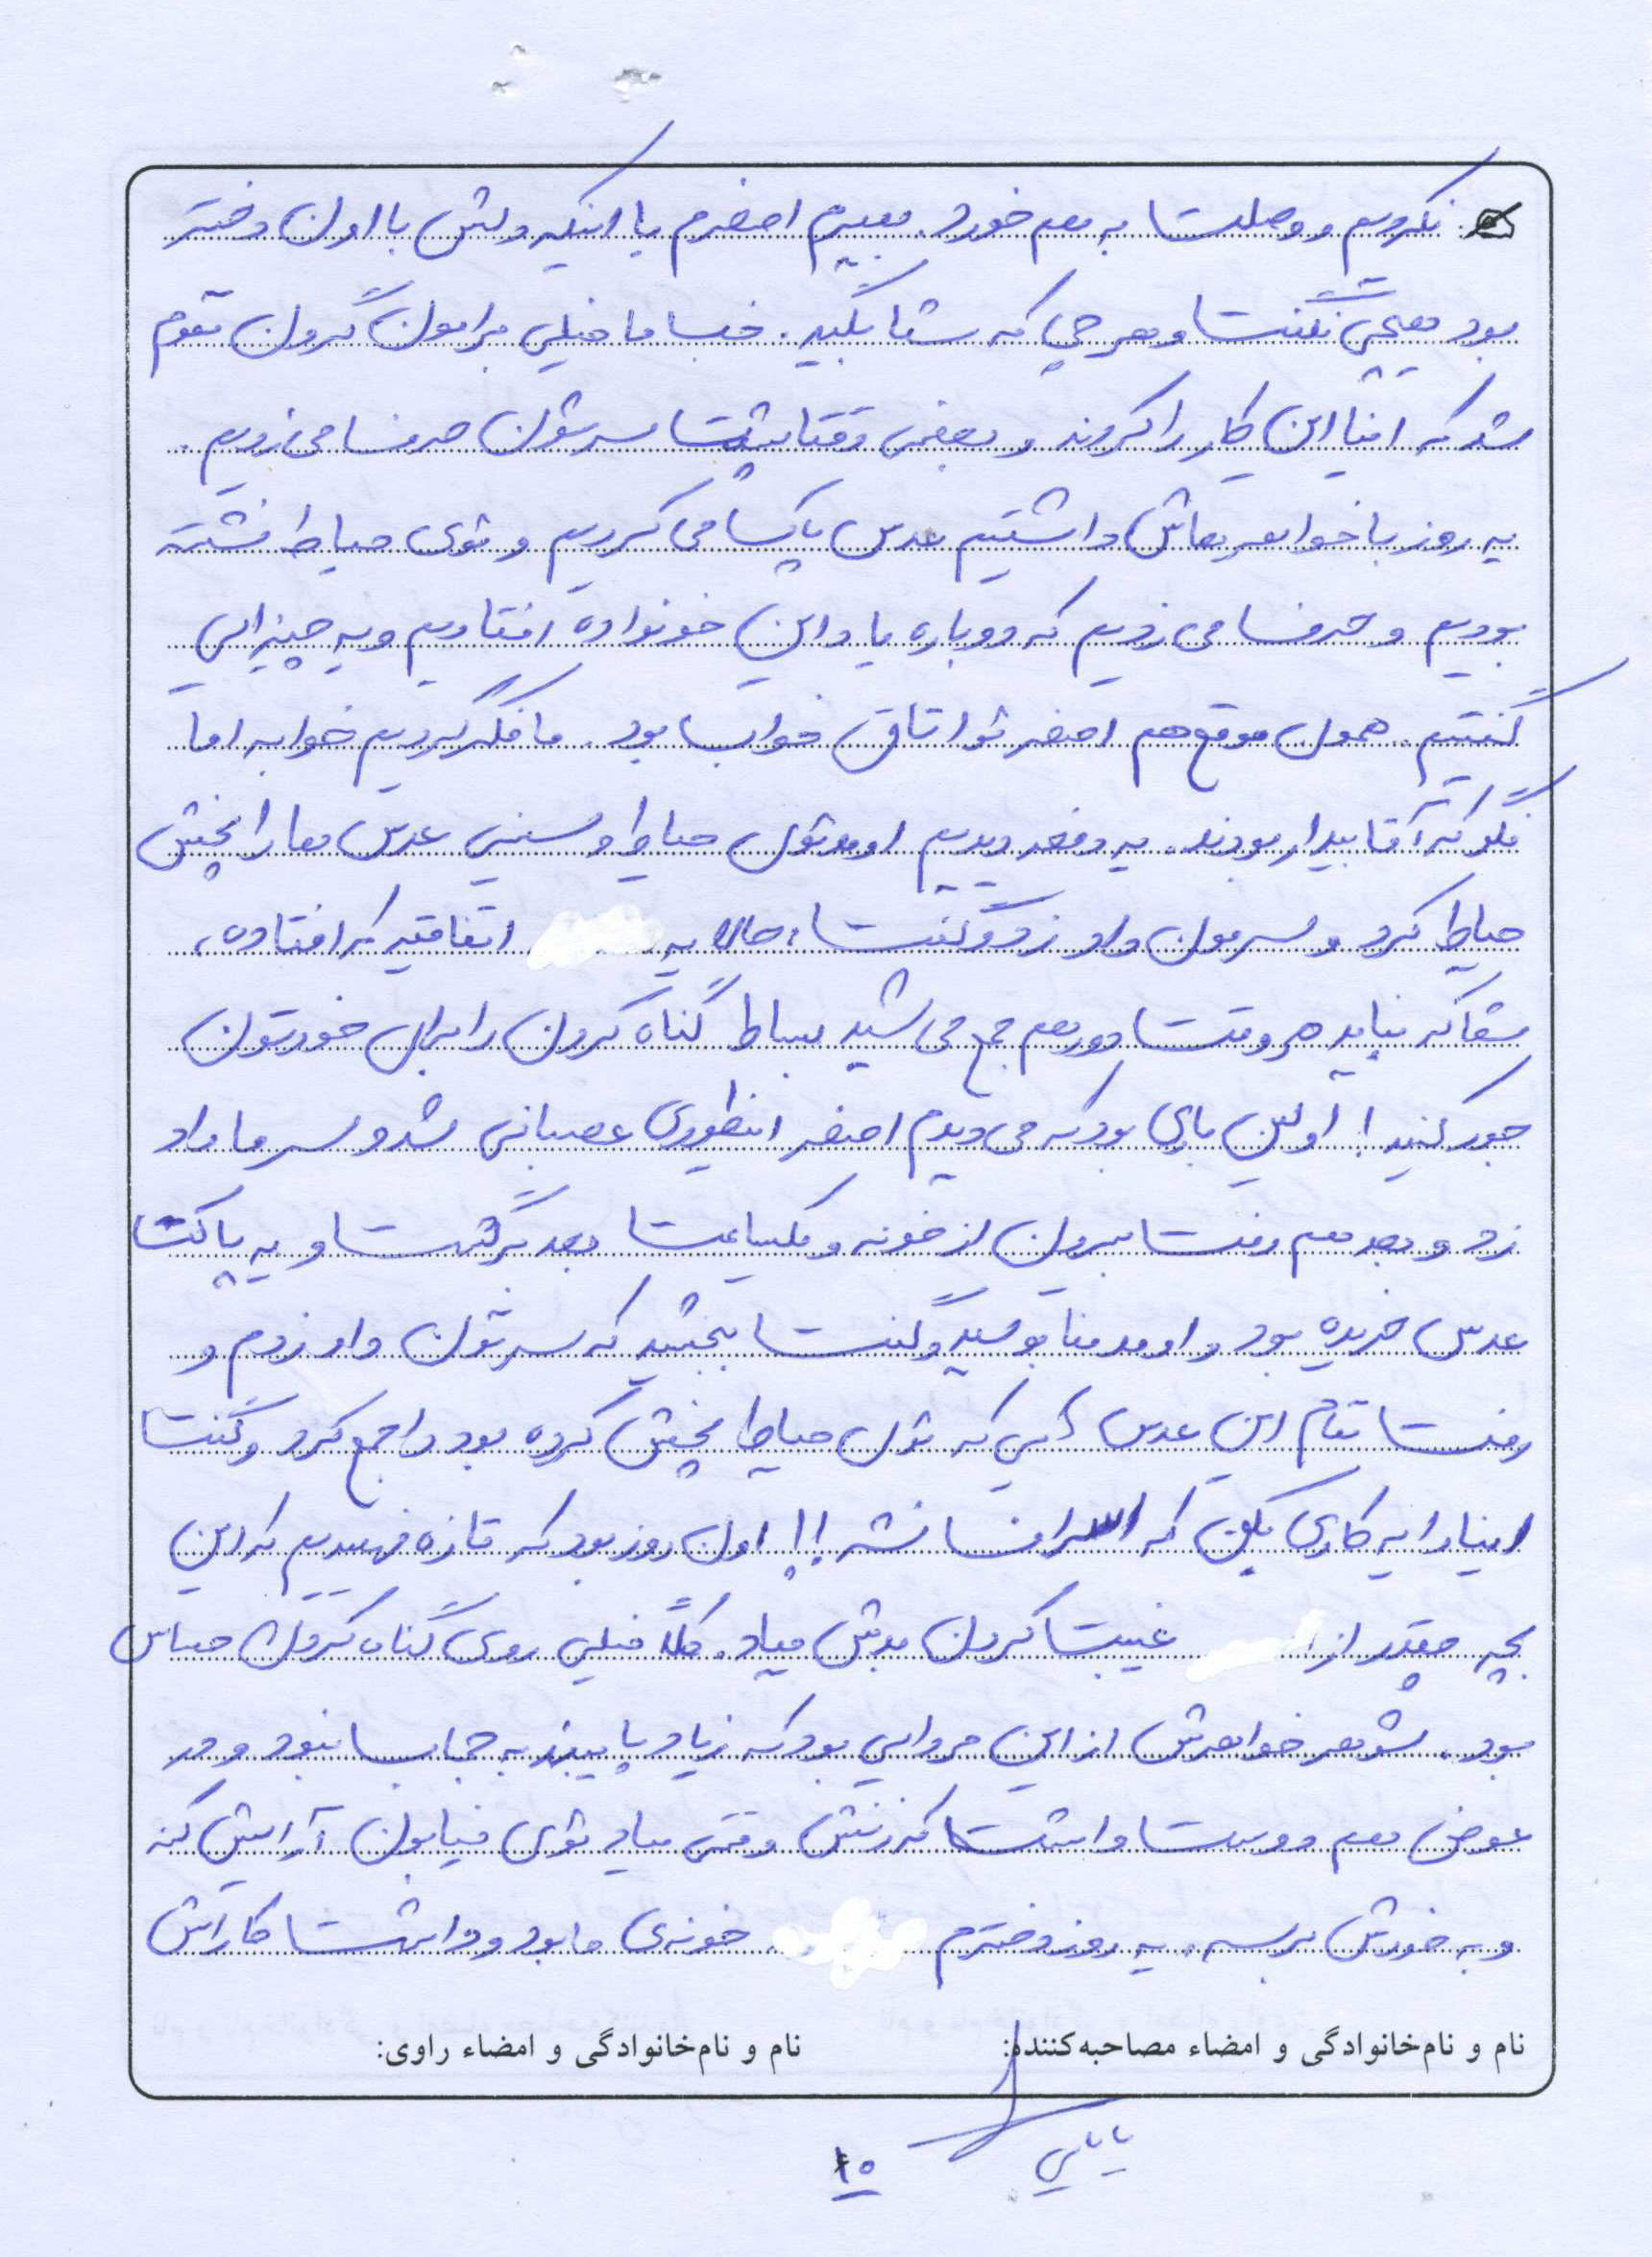 نکردیم و وصلت به هم خورد. ببین اصغرم با اینکه دلش با اون دختر
بود هیچی نگفت و هر چی که شما بگید. خب ما خیلی برامون گرون تموم
شد که اینا این کار را کردند و بعضی وقتا پشت سرشون حرف می‌زدیم.
یه روز با خواهرهاش داشتیم عدس پاک می‌کردیم و توی حیاط نشسته
بودیم و حرف می‌زدیم که دوباره یاد این خونواده افتادیم و یه چیزایی
گفتیم. همون موقع هم اصغر تو اتاق خواب بود. ما فکر کردیم خوابه اما
نگو که آقا بیدار بودند. یه دفعه دیدیم اومد توی حیاط و سینی عدس ها را پخش
حیاط کرد و سرمون داد زد و گفت: حالا یه اتفاقیه که افتاده،
شما که نباید هر وقت دور هم جمع می‌شید بساط گناه کردن را برای خودتون
جور کنید! اولین باری بود که می‌دیدم اصغر اینطوری عصبانی شد و سر ما داد
زد و بعد هم رفت بیرون از خونه و یکساعت بعد برگشت و یه پاکت
عدس خریده بود و اومد منا بوسید و گفت ببخشید که سرتون داد زدم و
رفت تمام این عدس أیی که توی حیاط پخش کرده بود را جمع کرد و گفت
اینارا یه کاری بکن که اسراف نشه!! اون روز بود که تازه فهمیدیم که این
بچه چقدر از غیبت کردن بدش میاد. کلاً خیلی روی گناه کردن حساس
بود. شوهر خواهرش از این مردایی بود که زیاد پایبند به حجاب نبود و در
عوض هم دوست داشت که زنش وقتی میاد توی خیابون آرایش کنه
و به خودش برسه. یه روز دخترم خونه‌ی ما بود و داشت کاراش
نام و نام‌خانوادگی و امضاء مصاحبه‌کننده: نام و نام‌خانوادگی و امضاء راوی:
بابایی
۱۵